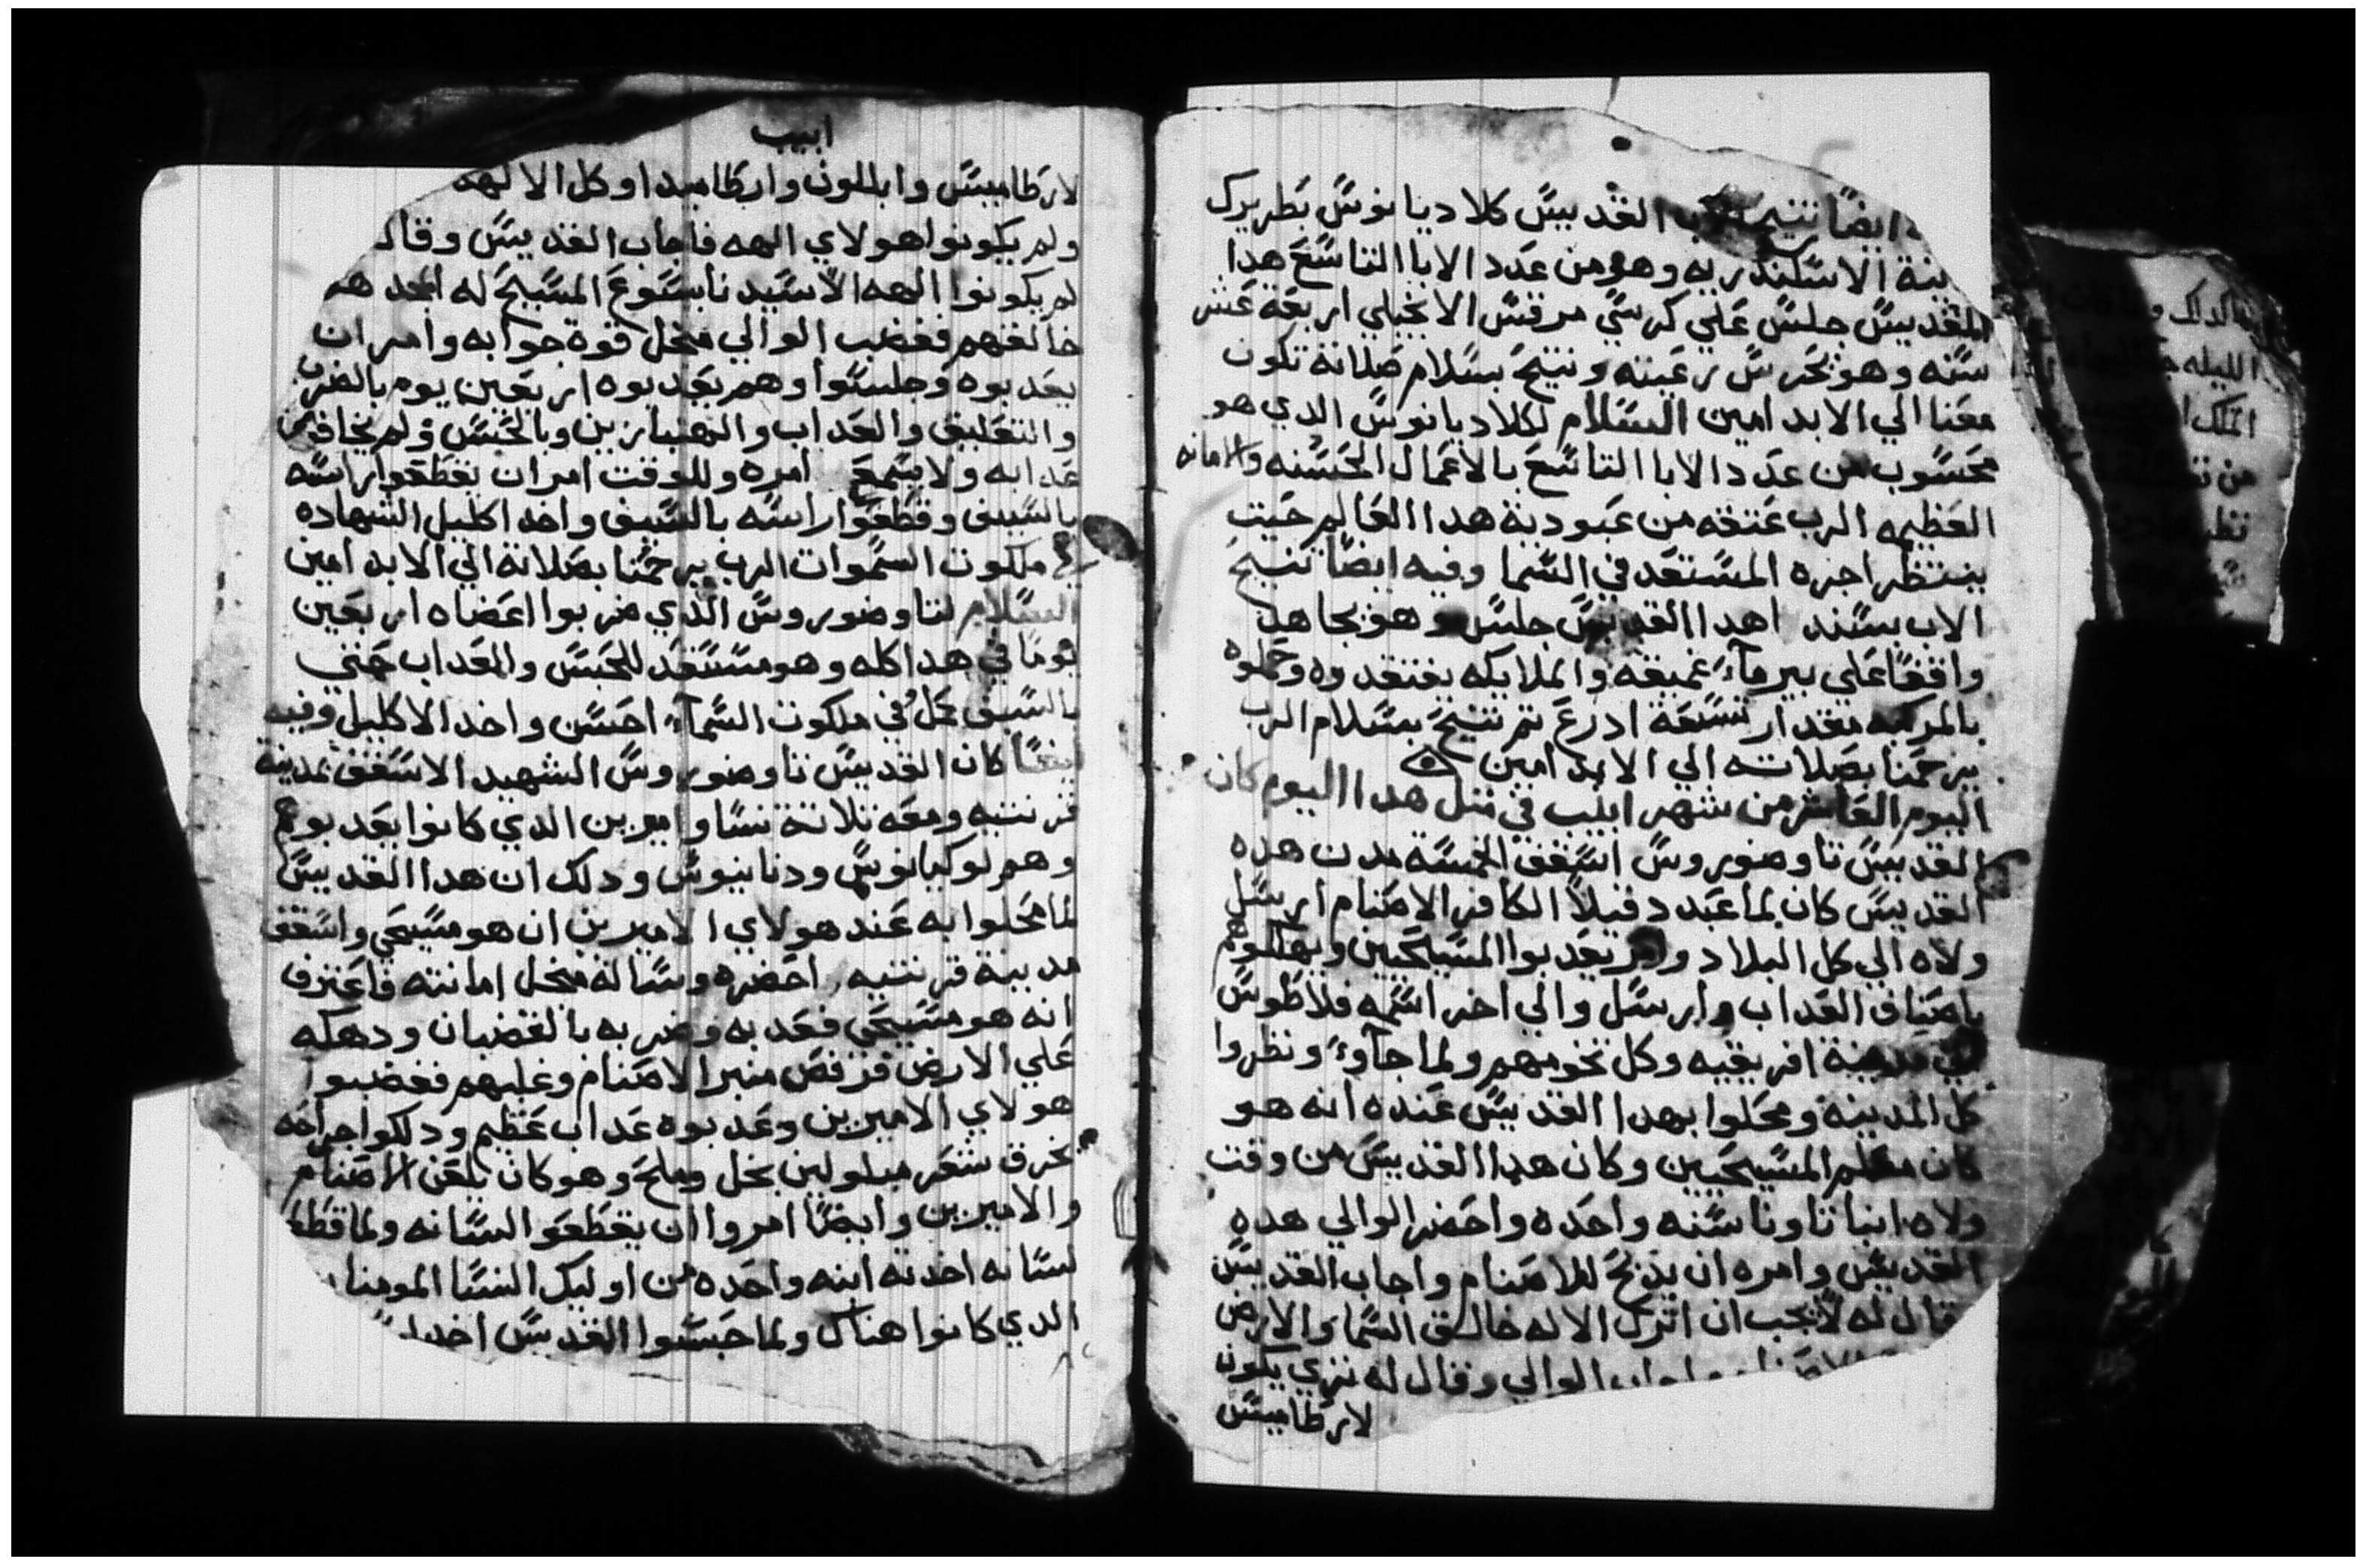 ايضًا تنيح الاب القديس كلاديانوس بطريرك
ينة الاسكندريه وهو من عدد الابا التاسع هدا
القديس جلس علي كرسي مرقس الانجيلي اربعة عشر
سنه وهو يحرس رعيته وتنيح بسلام صلاته تكون
معنا الي الابد امين السلام لكلاديانوس الدي هو
محسوب من عدد الابا التاسع بالاعمال الحسنه والامانه
العظيمه الرب عتقه من عبودية هدا العالم حيت
ينتظر اجره المستعد في السما وفيه ايضًا تنيح
الاب بسند اهدا القديس جلس وهو يجاهد
واقفًا علي بير ماءً عميقه والملايكه يفتقدوه وحملوه
بالمركبه مقدار تسعة ادرع تم تنيح بسلام الرب
يرحمنا بصلاته الي الابد امين
اليوم العاشر من شهر ابيب في متل هدا اليوم كان
القديس تاوضوروس اسقف الخمسة مدن هده
القديس كان لما عبد دقيلاً الكافر الاصنام ارسل
ولاه الي كل البلاد وامر يعدبوا المسيحيين ويهلكوهم
باصناف العداب وارسل والي اخر اسمه فلاطوس
الي مدينة افريقيه وكل تخومهم ولما جآوءً ونظروا
كل المدينة ومحلوا بهدا القديس عنده انه هو
كان معلم المسيحيين وكان هدا القديس من وقت
ولاه انبا تاوناسنه واحده واحضر الوالي هده
القديس وامره ان يدبح للاصنام واجاب القديس
قال له لا يجب ان اترك الاله خالق السما والارض
الاصنام واجاب الوالي وقال له تري يكون
لارطاميس
ابيب
لارطاميس وابللون وارطاميدا وكل الالهه
ولم يكونوا هولاي الهه فاجاب القديس وقال
لم يكونوا الهه الا سيدنا يسوع المسيح له المجد هو
خالقهم فغضب الوالي منجل قوة جوابه وامر ان
يعدبوه وجلسوا وهم يعدبوه اربعين يوم بالضرب
والتعليق والعداب والهنبازين وبالحبس ولم يخاف من
عدابه ولا يسمع امره وللوقت امر ان يقطعوا راسه
بالسيف وقطعوا راسه بالسيف واخد اكليل الشهاده
في ملكوت السموات الرب يرحمنا بصلاته الي الابد امين
السلام لتاوضوروس الدي ضربوا اعضاه اربعين
يومًا في هدا كله وهو مستعد للحبس والعداب حتي
بالسيف عمل في ملكوت السماءً احسن واخد الاكليل وفيه
ايضًا كان القديس تاوضوروس الشهيد الاسقف بمدينة
قرنتيه ومعه تلاتة نسا واميرين الدي كانوا يعدبوهم
وهم لوكيانوس ودنانيوس ودلك ان هدا القديس
لما محلوا به عند هولاي الاميرين ان هو مسيحي واسقف
مدينة قرنتيه احضره وساله منجل امانته فاعترف
انه هو مسيحي فعدبه وضربه بالقضبان ودهكه
علي الارض فرفص منبر الاصنام وغلبهم فغضبوا
هولاي الاميرين وعدبوه عداب عظيم ودلكوا جراحه
بخرق شعر مبلولين بخل وملح وهو كان يلعن الاصنام
والاميرين وايضًا امروا ان يقطعوا لسانه ولما قطعوا
لسانه اخدته ابنه واحده من اوليك النسا المومنا
الدي كانوا هناك ولما حبسوا القديس اخد